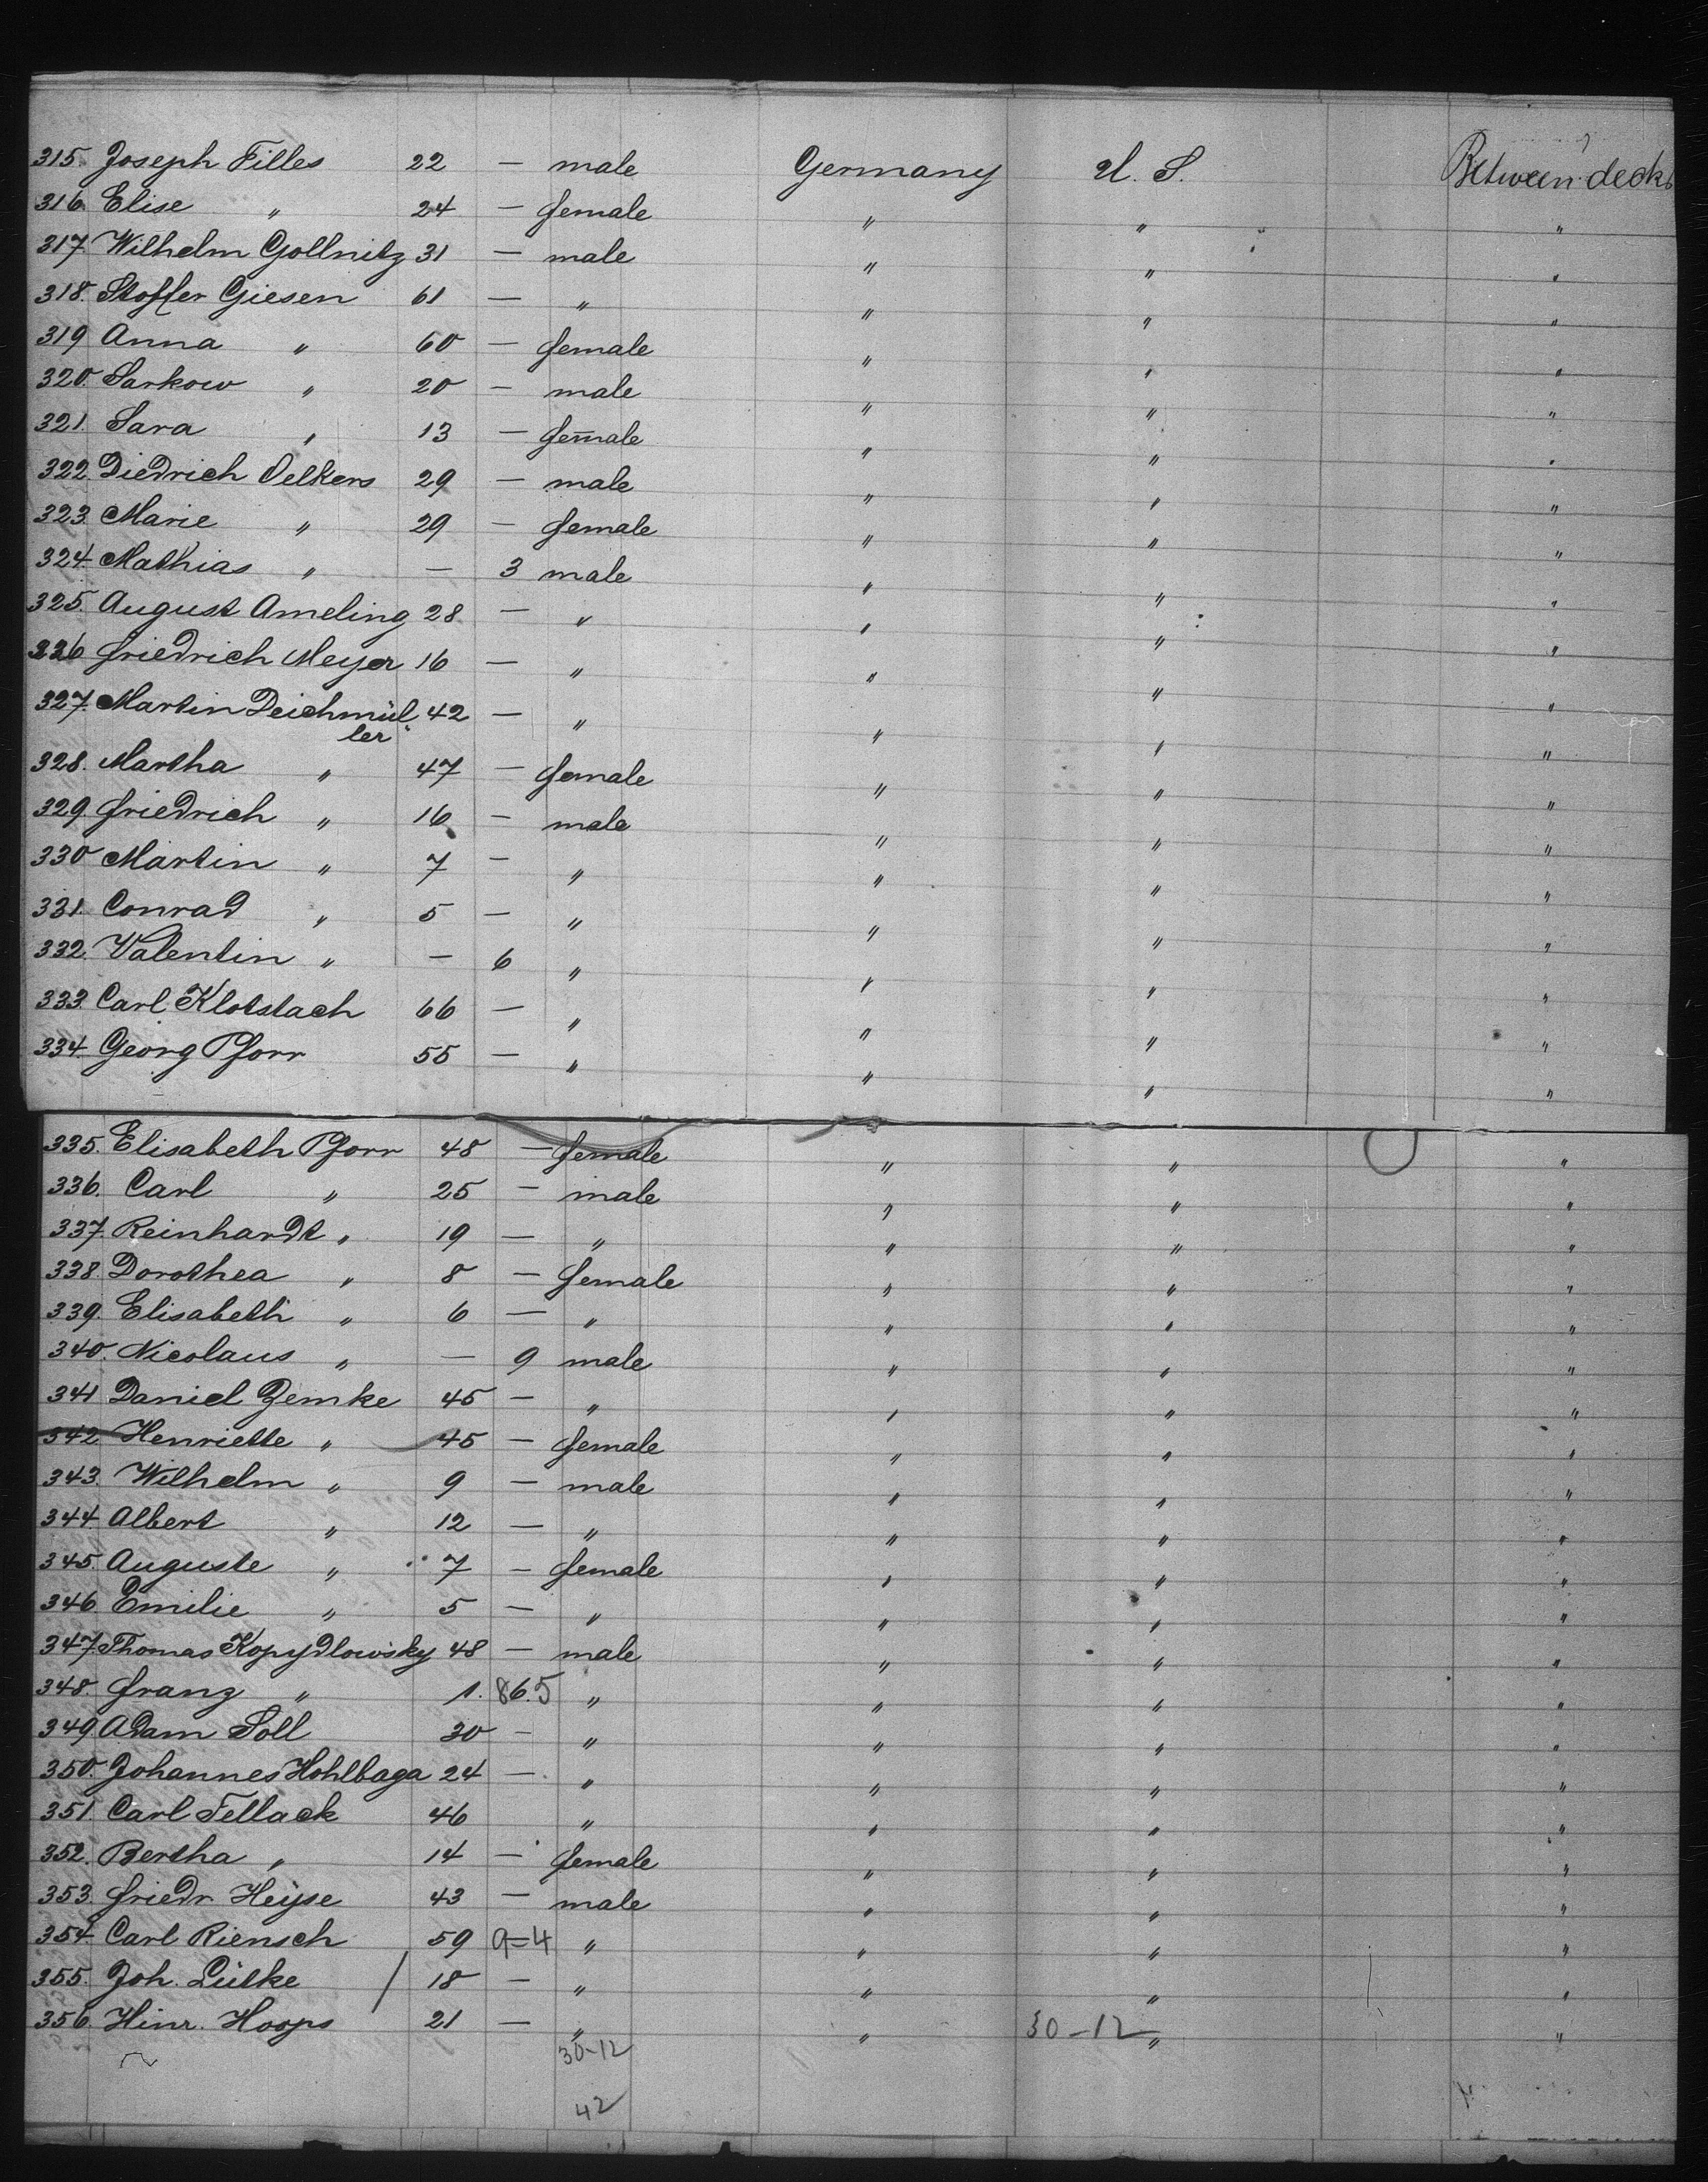 315. Joseph Filles 22 — male Germany U. S. Between decks
316. Elise " 24 — female " " "
317. Wilhelm Gollnitz 31 — male " " "
318. Stoffer Giesen 61 — " " " "
319 Anna " 60 — female " " "
320. Sarkow " 20 — male " " "
321. Sara " 13 — female " " "
322. Diedrich Oelkers 29 — male " " "
323. Marie " 29 — female " " "
324. Mathias " — 3 male " " "
325. August Ameling 28 — " " " "
326 Friedrich Meyer 16 — " " " "
327. Martin Deichmül 42 — " " " "
ler
328. Martha " 47 — female " " "
329. Friedrich " 16 — male " " "
330 Martin " 7 — " " " "
331. Conrad " 5 — " " " "
332. Valentin " — 6 " " " "
333. Carl Klotstach 66 — " " " "
334. Georg Pforr 55 — " " " "
335. Elisabeth Pforr 48 — female " " "
336. Carl " 25 — male " " "
337. Reinhardt " 19 — " " " "
338. Dorothea " 8 — female " " "
339. Elisabeth " 6 — " " " "
340. Nicolaus " — 9 male " " "
341 Daniel Zemke 45 — " " " "
342 Henriette " 45 — female " " "
343. Wilhelm " 9 — male " " "
344. Albert " 12 — " " " "
345. Auguste " 7 — female " " "
346. Emilie " 5 — " " " "
347. Thomas Kopydlowsky 48 — male " " "
348. Franz " 1. 86.5 " " " "
349. Adam Soll 30 — " " " "
350. Johannes Hohlbaga 24 — " " " "
351. Carl Fellack 46 " " " "
352. Bertha " 14 — female " " "
353. Friedr Heyse 43 — male " " "
354. Carl Riensch 59 9=4 " " " "
355. Joh. Lütke / 18 — " " " "
356. Hinr. Hoops 21 — " " 30-12 " "
30-12
42